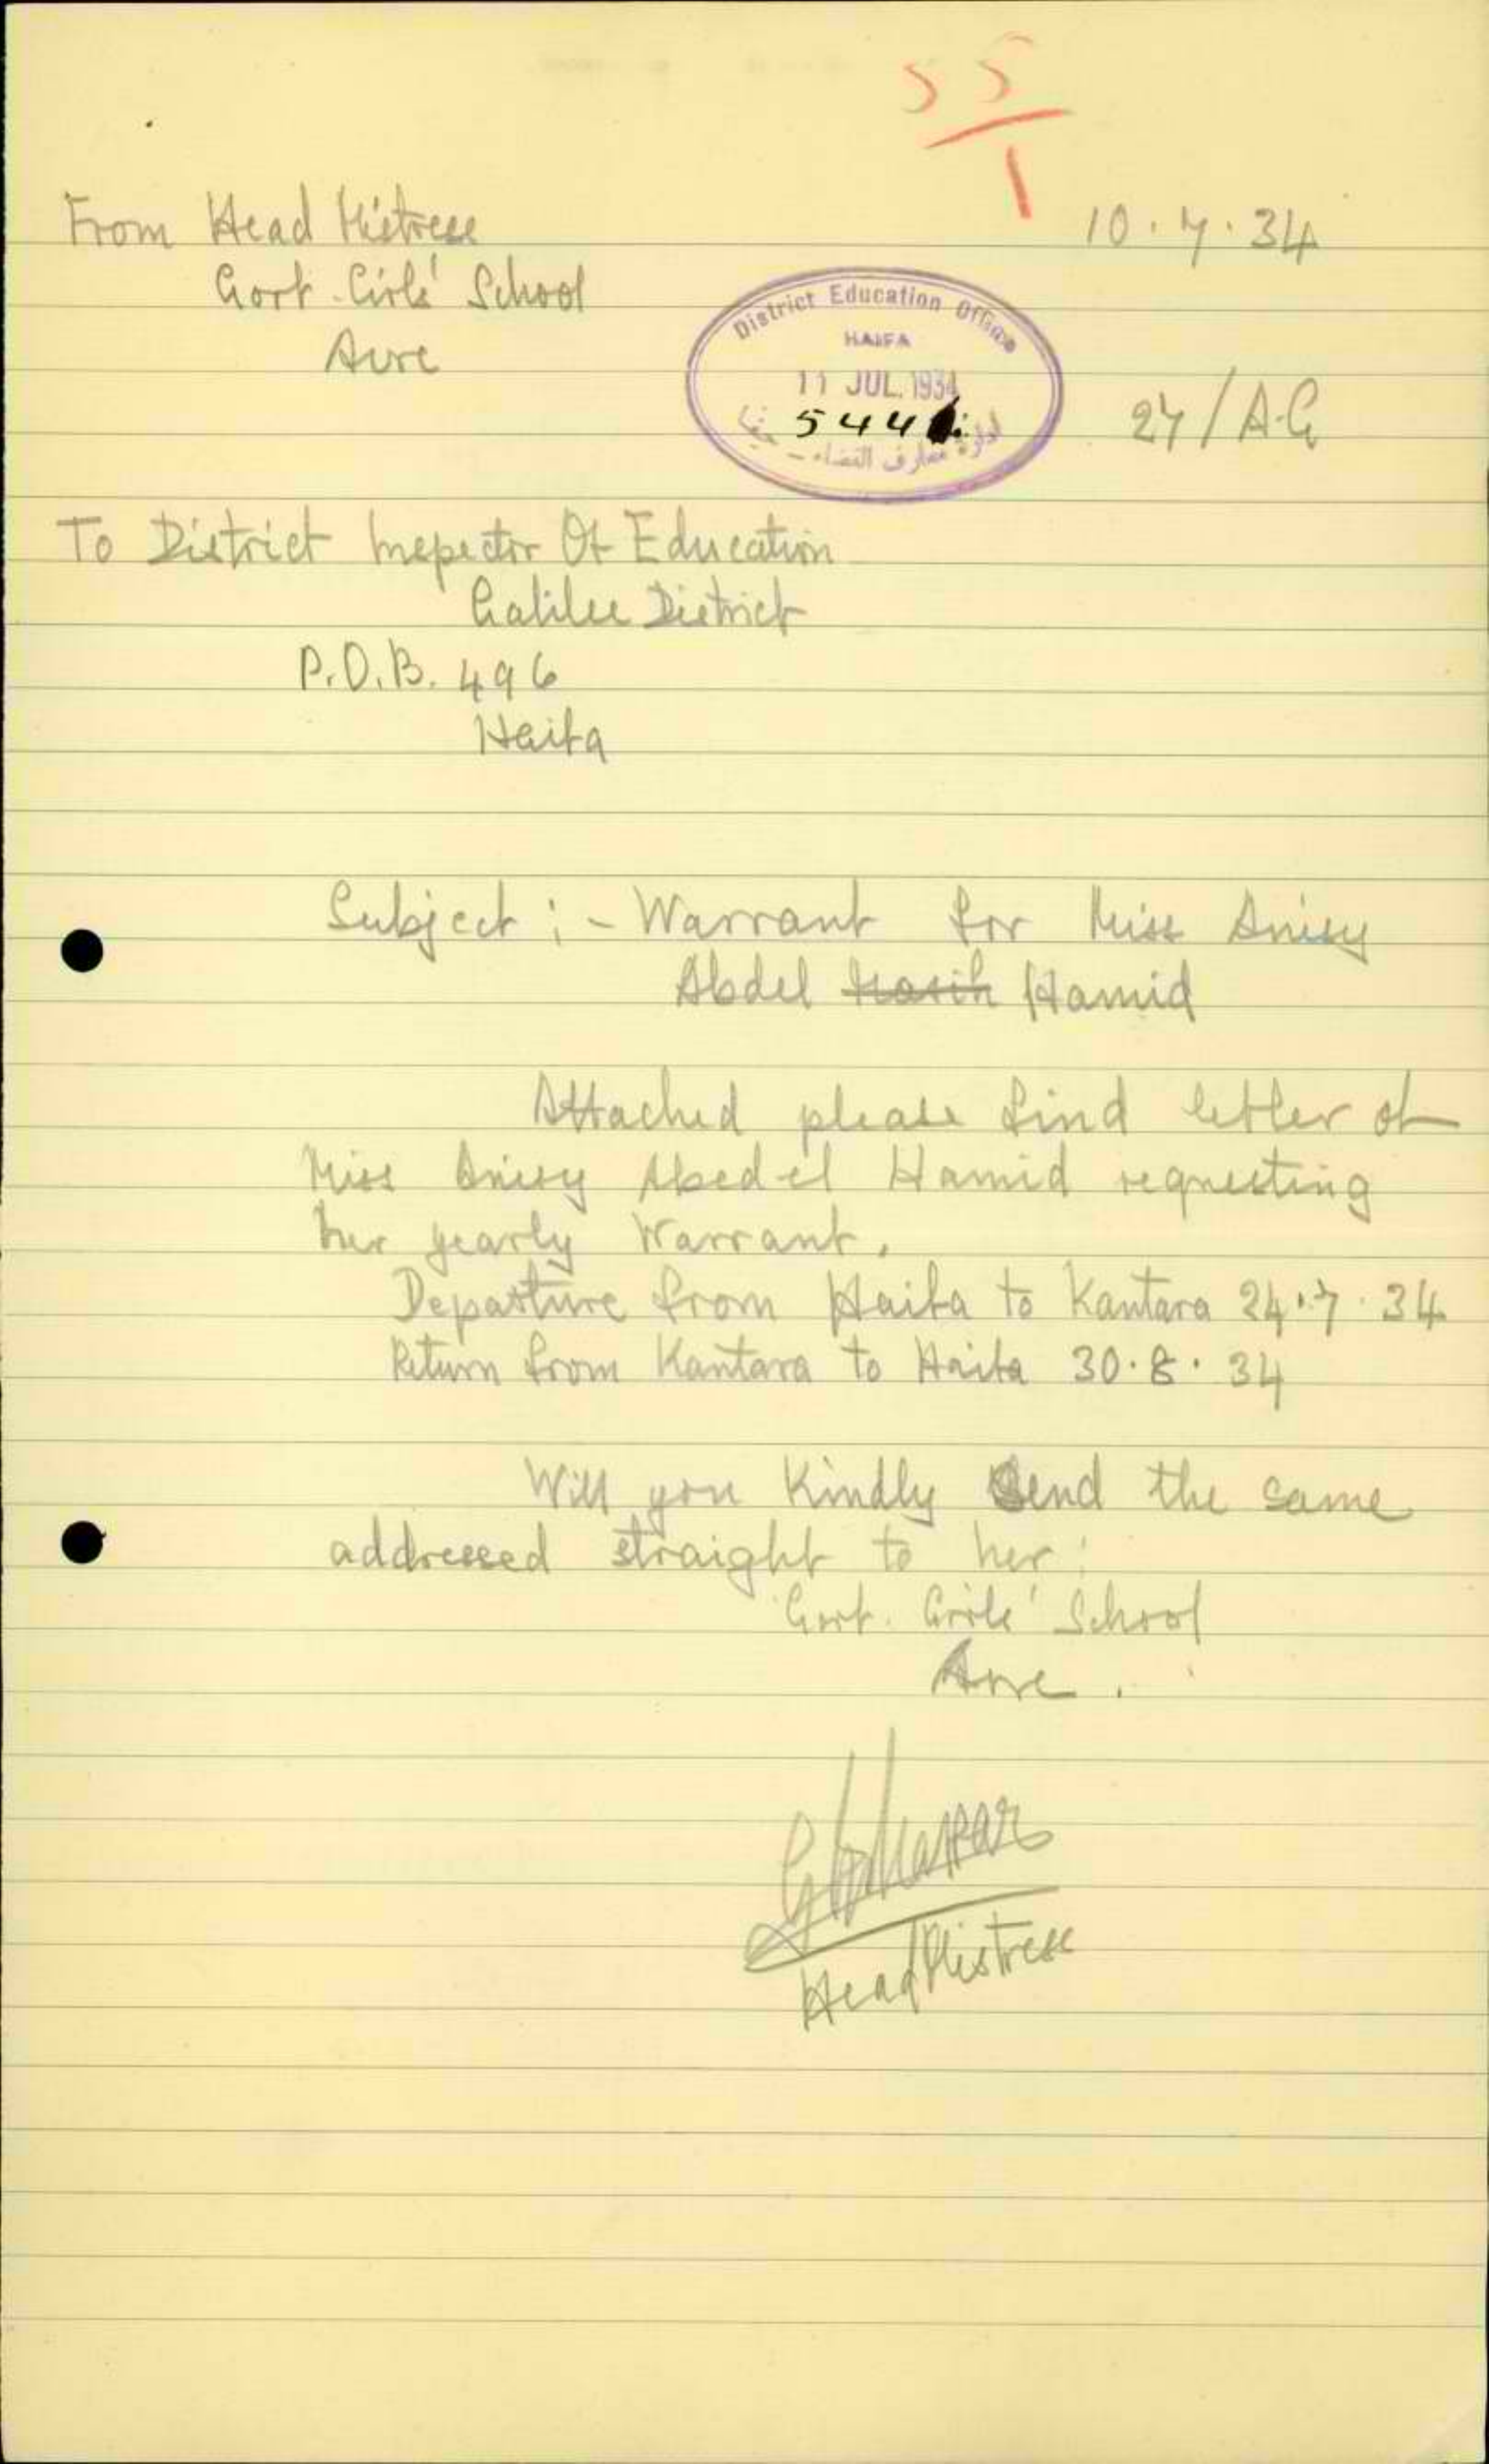 55
1
From Head Mistress
Govt. Girls' School
Acre
10.7.34
District Education Office
HAIFA
11 JUL. 1934
544
ادارة معارف القضاء - حيفا
27/A.G
To District Inspector Of Education
Galilee District
P.O.B. 496
Haifa
Subject :- Warrant for Miss Anisy
Abdel Hamid
Attached please find letter of
Miss Anisy Abed el Hamid requesting
her yearly Warrant.
Departure from Haifa to Kantara 24.7.34
Return from Kantara to Haifa 30.8.34
Will you Kindly Send the same
addressed straight to her:
Govt. Girls' School
Acre.
Head Mistress